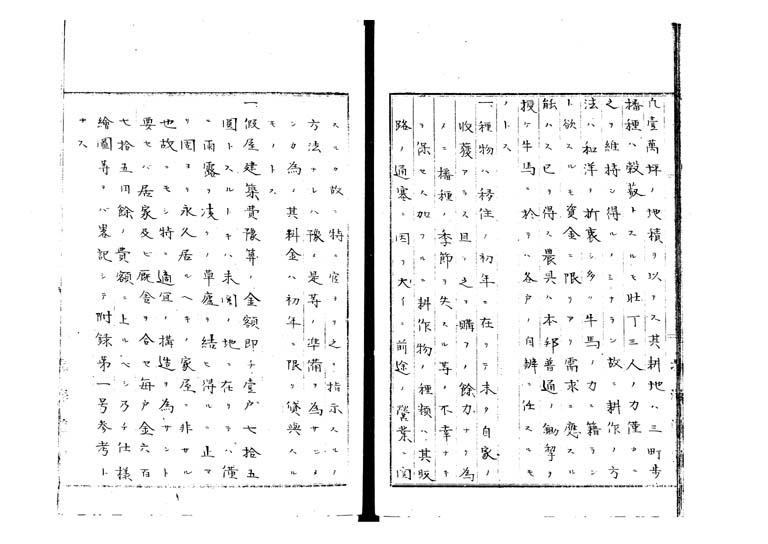 凡壹萬坪ノ地積ヲ以テス其耕地ハ三町歩
播種ハ穀菽トスルモ壮丁三人ノ力僅カニ
之ヲ維持シ得ルノミナラン故ニ耕作ノ方
法ハ和洋ヲ折衷シ多ク牛馬ノ力ニ籍ラン
ト欲スルモ資金ニ限リアリ需求ニ應スル
能ハス已ヲ得ス農具ハ本邦普通ノ鋤犂ヲ
授ケ牛馬ニ於テハ各戸ノ自辨ニ任スルモ
ノトス
一種物ハ移住ノ初年ニ在リテ未タ自家ノ
收獲アラス且ツ之ヲ購フノ餘力ナク為
メニ播種ノ季節ヲ失スル等ノ不幸ナキ
ヲ保セス加フルニ耕作物ノ種類ハ其販
路ノ通塞ニ因リ大イニ前途ノ營業ニ関
スルカ故ニ特ニ官ヨリ之ヲ指示スルノ
方法ナレハ豫メ是等ノ準備ヲ為サシメ
ンカ為メ其料金ハ初年ニ限リ貸與スル
モノトス
一假屋建築費豫算ノ金額即チ壹戸七拾五
圓トスルトキハ未開ノ地ニ在リテハ僅
ニ雨露ヲ凌クノ草廬ヲ結ヒ得ルニ止マ
リ固ヨリ永久居ルヘキノ家屋ニ非サル
也故ニモシ特ニ適宜ノ構造ヲ為サント
要セハ居家及ヒ厩舎ヲ合セ毎戸金六百
七拾五円餘ノ費額ニ上ルベシ乃チ仕様
繪圖等ヲバ畧記シテ附録第一号参考ト
ナス